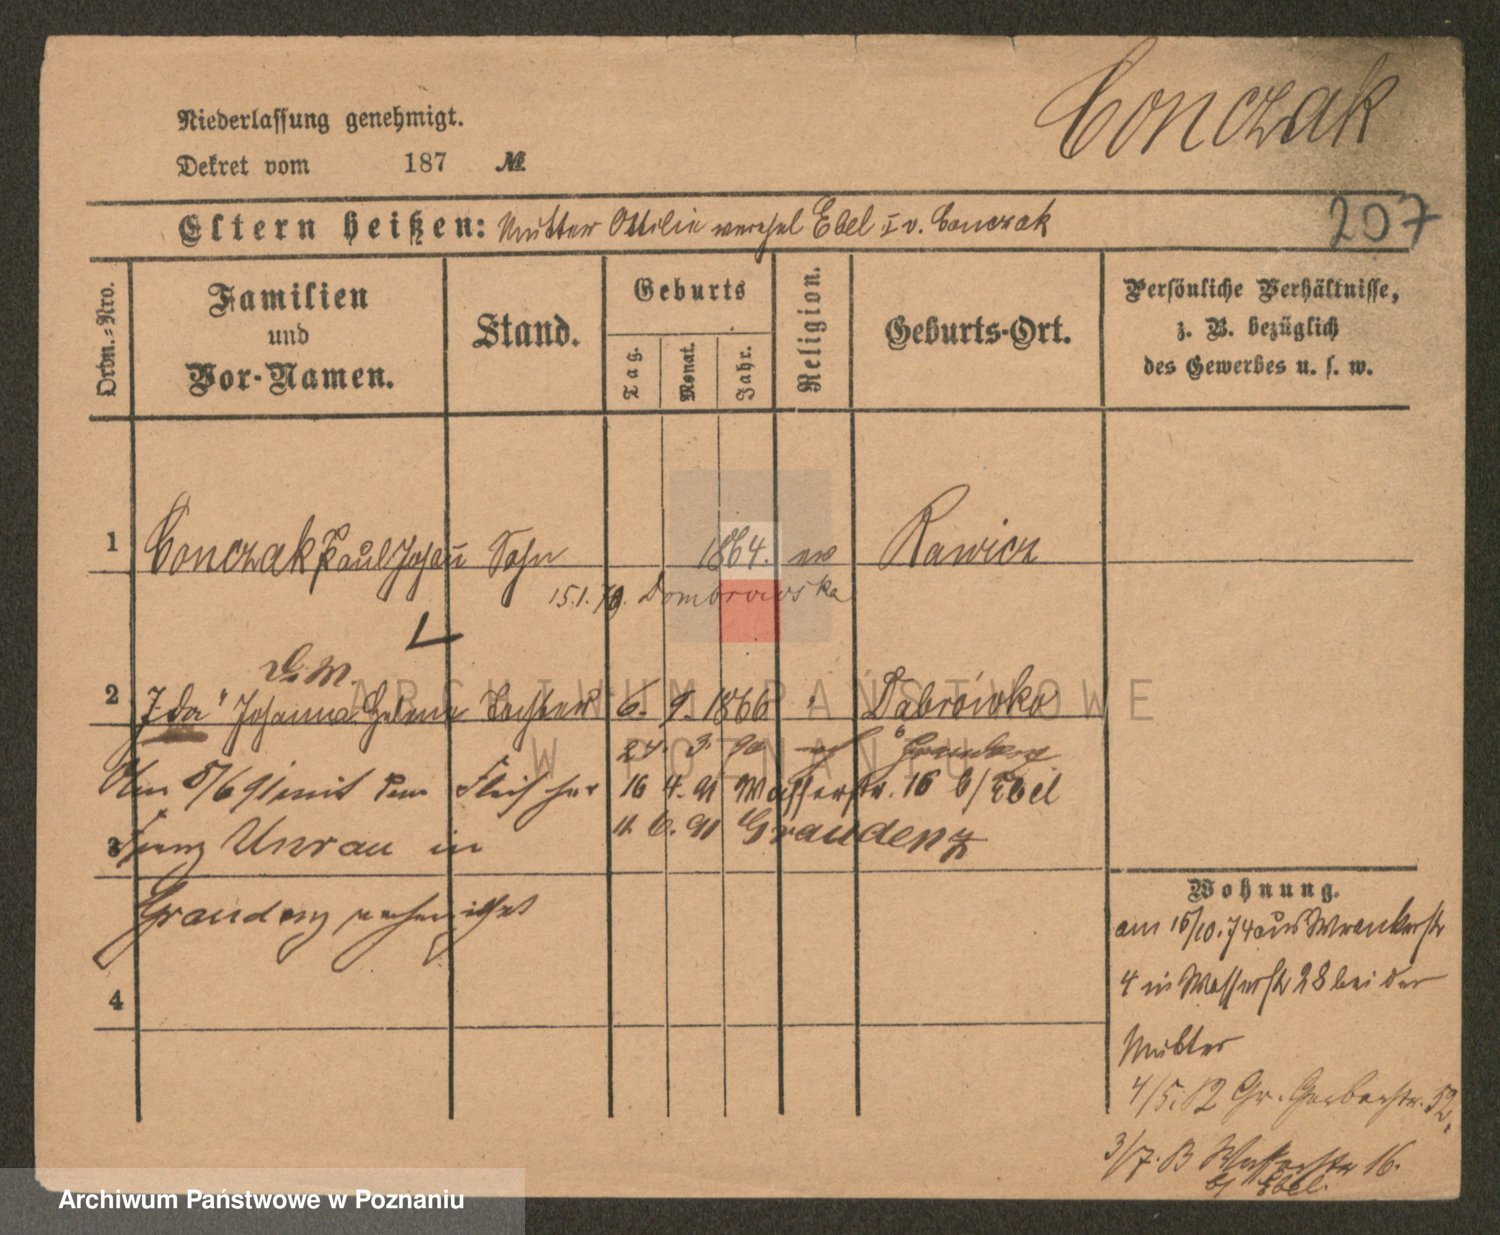 Conczak
Niederlassung genehmigt.
Dekret vom 187 №
207
Eltern heißen: Mutter Ottilie verehel Ebel I v. Conczak
Ordn.-Nro.
Familien
und
Vor-Namen.
Stand.
Geburts
Tag.
Monat.
Jahr.
Religion.
Geburts-Ort.
Persönliche Verhältnisse,
z. B. bezüglich
des Gewerbes u. s. w.
1 Conczak Paul Johan̄ Sohn 1864. ev Rawicz
15.1.79. Dombrowska
D. M.
2 "Ida" Johanna Helene Tochter 6. 9. 1866 Dabrowka
24. 3. 90 Graudenz
Am 5/6 91 mit dem Fleischer 16 4. 91 Wasserstr. 16 b/ Ebel
3 Franz Unrau in 11. 6. 91 Graudenz
Graudenz verheirathet
4
Wohnung.
am 15/10. 74 aus Wronkerstr
4 in Wasserstr 28 bei der
Mutter
4/5. 82 Gr. Gerberstr. 52.
3/7. 83 Wasserstr 16.
b/ Ebel.
ARCHIWUM PAŃSTWOWE
W POZNANIU
Archiwum Państwowe w Poznaniu